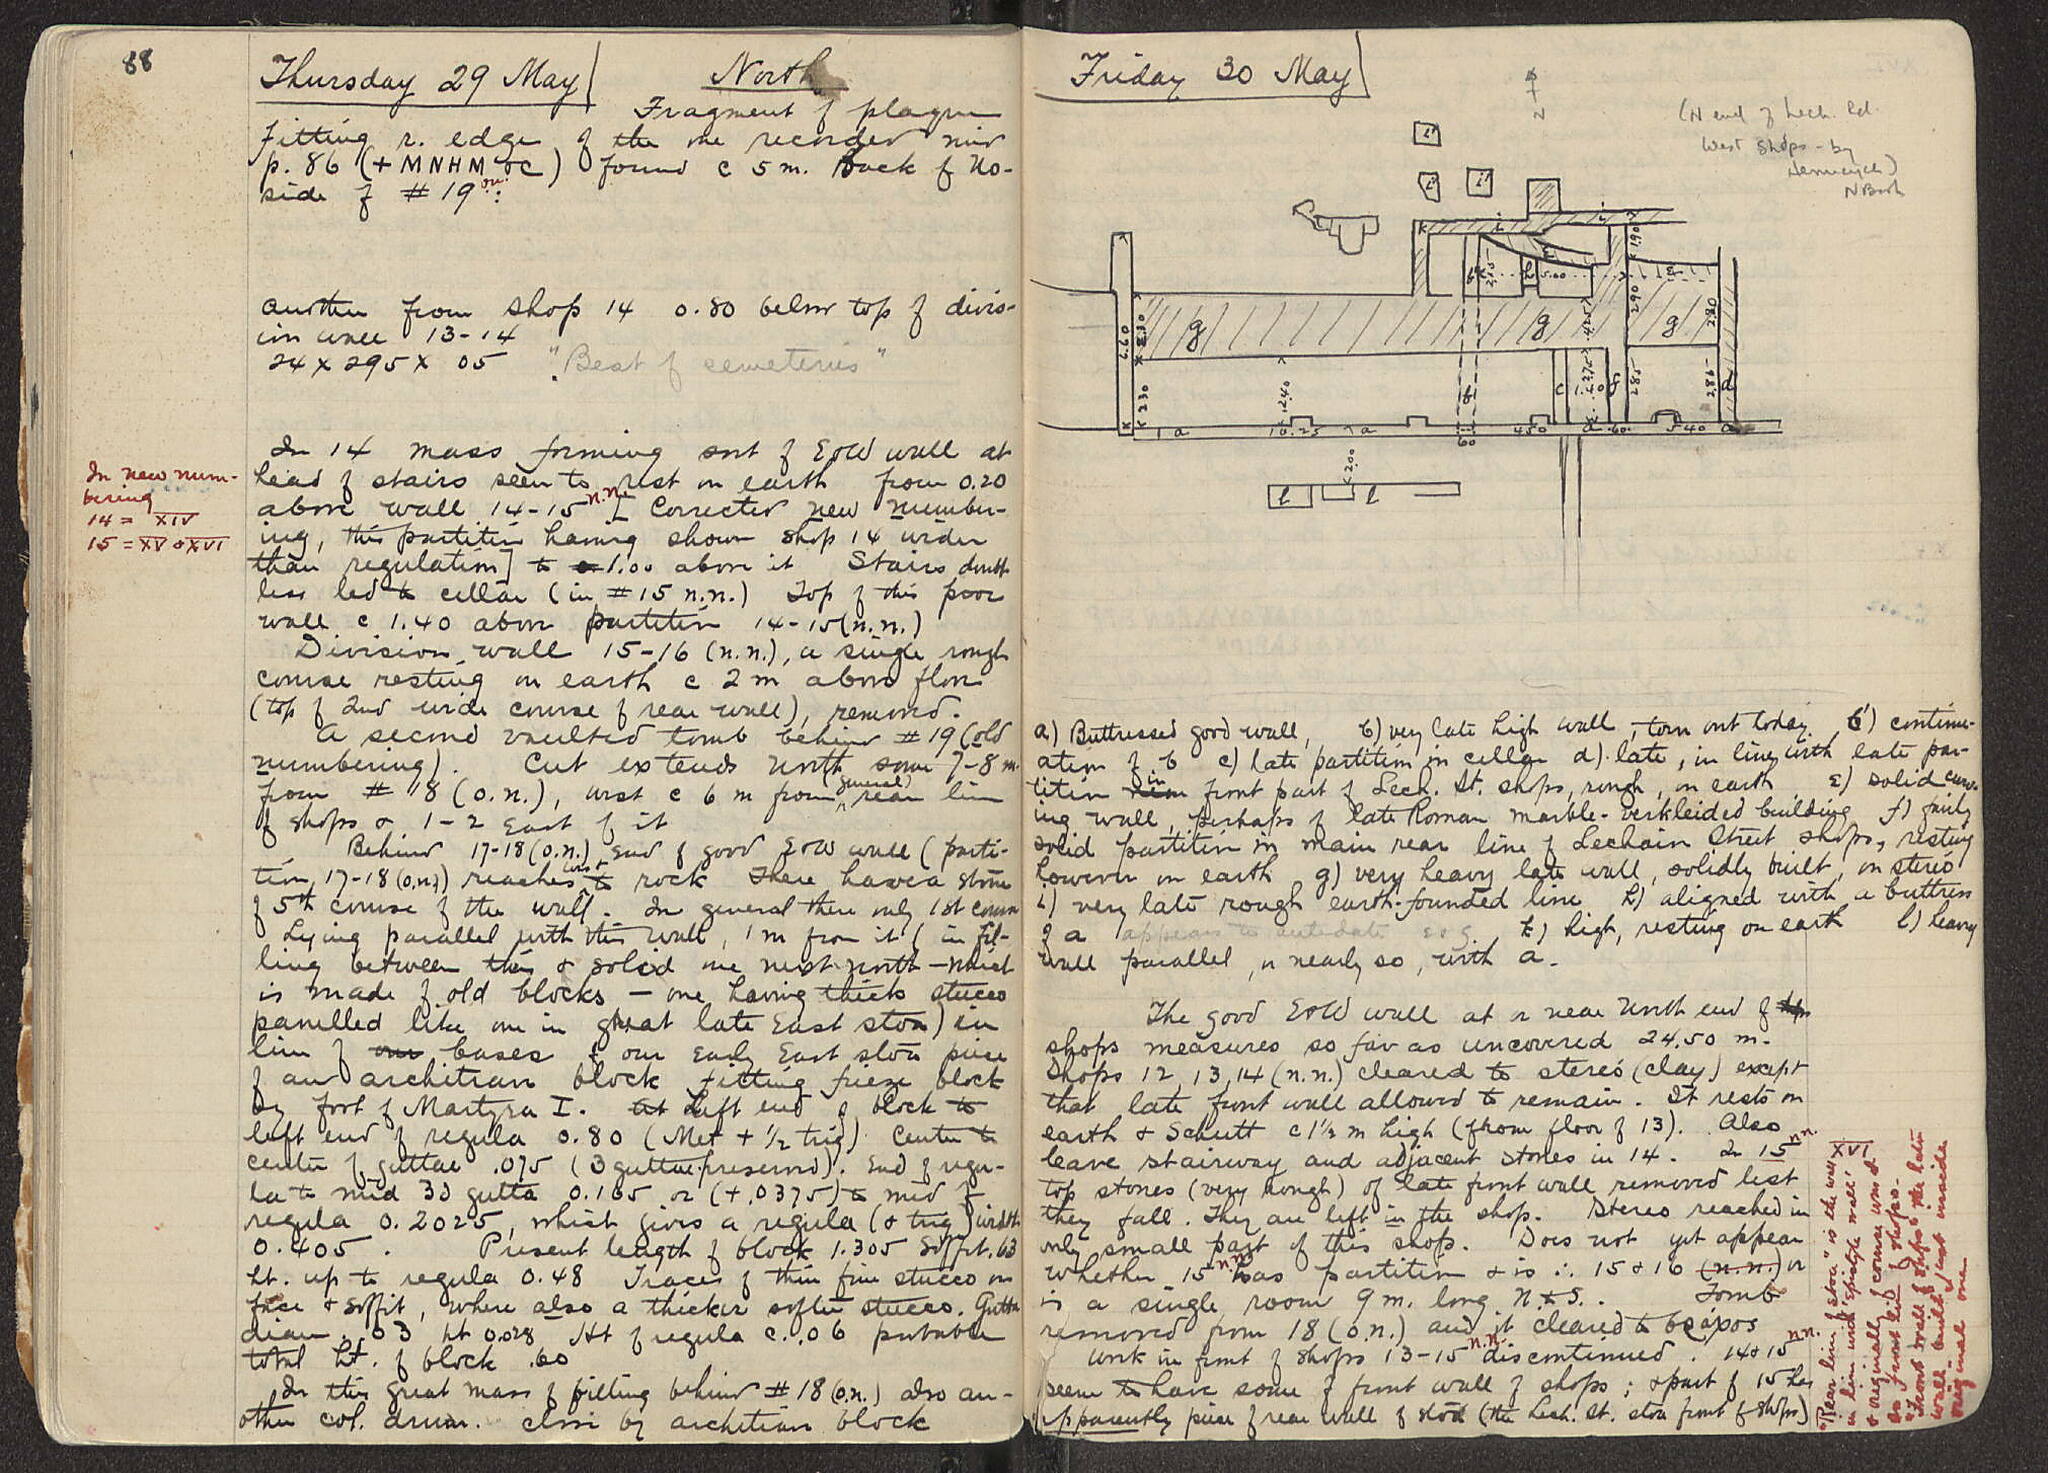 88
Thursday 29 May
North
Fragment of plaque
fitting r. edge of the one recorded
p. 86 (+ MNHM ) found c 5 m. back of No-
side of # 19 o.n.
another from shop 14 0.80 below top of divis-
ion wall 13-14
24 x 295 x 05 "Best of cemeteries"
In 14 mass forming sort of E&W wall at
head of stairs seen to rest on earth from 0.20
above wall 14-15 n.n. [Corrected new number-
ing, this partition having shown shop 14 wider
than regulation] to 1.00 above it Stairs doubt
less led to cellar (in #15 n.n.) Top of this poor
wall c 1.40 above partition 14-15 (n.n.)
In new num-
bering
14 = XIV
15 = XV & XVI
Division wall 15-16 (n.n.), a single rough
course resting on earth c 2 m above floor
(top of 2nd wide course of rear wall), removed.
A second vaulted tomb behind # 19 (old
numbering). Cut extends North some 7-8 m.
from # 18 (o.n.), west c 6 m from general rear line
of shops & 1-2 East of it
Behind 17-18 (o.n.) end of good E&W wall (parti-
tion 17-18 (o.n.)) reaches to rock There have a stone
of 5th course of the wall. In general there only 1st course
Lying parallel with this wall, 1 m from it (in fil-
ling between this & solid one next north - which
is made of old blocks - one having thick stucco
panelled like one in great late East stoa) in
line of bases of our Early East stoa piece
of an architrave block fitting frieze block
by foot of Martyra I. Left end of block to
left end of regula 0.80 (Met + 1/2 trig) Center to
center of guttae .075 (3 guttae preserved). End of regu-
la to mid 3d gutta 0.165 or (+.0375) to mid of
regula 0.2025, which gives a regula (& trig) width
0.405. Present length of block 1.305 Soffit .63
ht. up to regula 0.48 Traces of thin fine stucco on
face & soffit, where also a thicker softer stucco. Gutta
diam. .03 ht 0.028 Ht of regula c. .06 probable
total ht. of block .60
In this great mass of filling behind # 18 (o.n.) also an-
other col. drum. close by architrave block
Friday 30 May
N
(N end of Lech. Rd.
West Shops - by
Hemicycle)
N Book
i'
i'
i'
k
i
i
1.90
h
5.00
ε
g
g
g
6.60
3.30
2.30
2.90
2.80
4.25
2.75
2.85
2.85
2.40
b
c
f
d
a
10.25
a
60
450
a
.60
540
a
2.00
l
l
a) Buttressed good wall, b) very late high wall, torn out today b') continu-
ation of b c) late partition in cellar d) late, in line with late par-
tition in front part of Lech. St. shops, rough, on earth ε) solid curv-
ing wall, perhaps of late Roman marble-verkleided building f) fairly
solid partition in main rear line of Lechaion Street shops, resting
however on earth g) very heavy late wall, solidly built, on stereo
i) very late rough earth-founded line h) aligned with a buttress
of a appears to antedate ε & g. k) high, resting on earth l) heavy
wall parallel, or nearly so, with a.
The good E&W wall at or near North end of
shops measures so far as uncovered 24.50 m.
Shops 12, 13, 14 (n.n.) cleared to stereo (clay) except
that late front wall allowed to remain. It rests on
earth & Schutt c 1½ m high (from floor of 13). Also
leave stairway and adjacent stones in 14. In 15 n.n.
top stones (very rough) of late front wall removed lest
they fall. They are left in the shop. Stereo reached in
only small part of this shop. Does not yet appear
whether 15 n.n. has partition & is ∴ 15 & 16 (n.n.) or
is a single room 9 m. long N. & S. Tomb
removed from 18 (o.n.) and it cleared to βράχος
Work in front of shops 13-15 n.n. discontinued. 14 & 15 n.n.
seem to have some of front wall of shops; & part of 15 has
apparently piece of rear wall of stoa (the Lech. St. stoa front of shops)
XVI
"Rear line of stoa" is the wall
in line with epistyle wall,
& originally cornice was
on front line of shops.
"Front wall of shops" the later
wall built just inside
original one